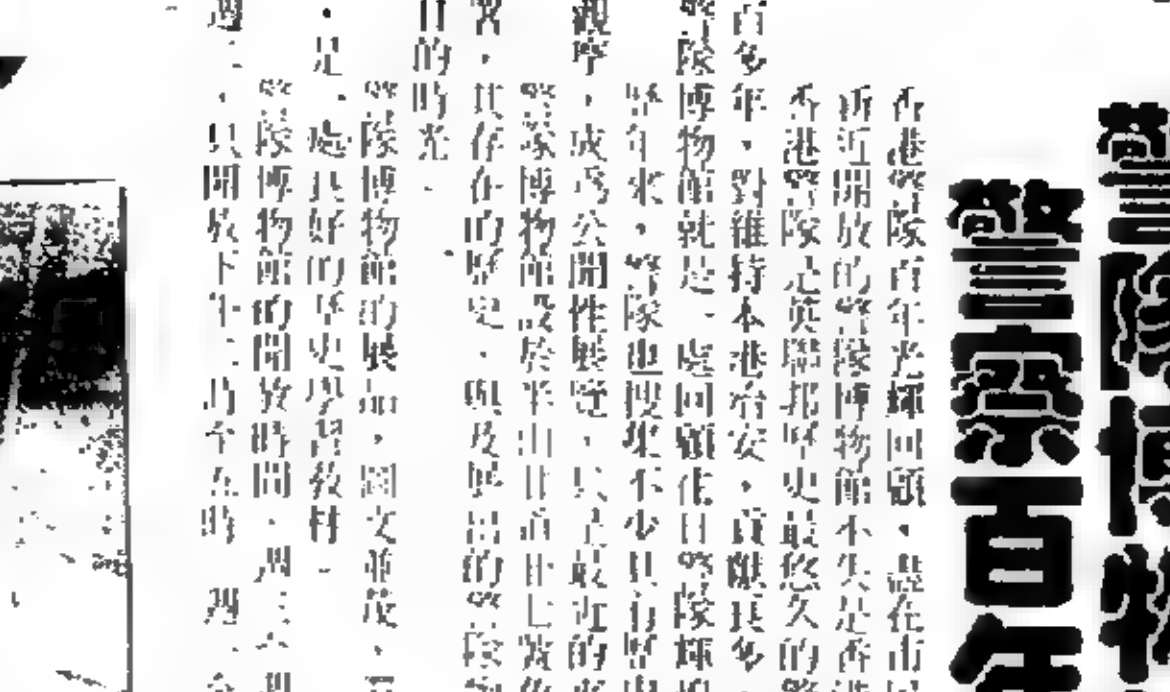 警隊博物
警察百年
香港警隊百年光輝回顧，盡在市民
新近開放的警隊博物館不失是香港
香港警隊是英聯邦歷史最悠久的警
百多年，對維持本港治安，貢獻良多，
警隊博物館就是一處回顧昔日警隊輝
歷年來，警隊也搜集不少具有歷史
觀摩，成為公開性展覽，只是最近的
警隊博物館設於半山甘道廿七號
習，其存在的歷史，與及展出的警隊物
日的時光。
警隊博物館的展品，圖文並茂，
，是一處良好的歷史學習教材。
警隊博物館的開放時間，週三六
週二，只開放下午二時至五時 週一